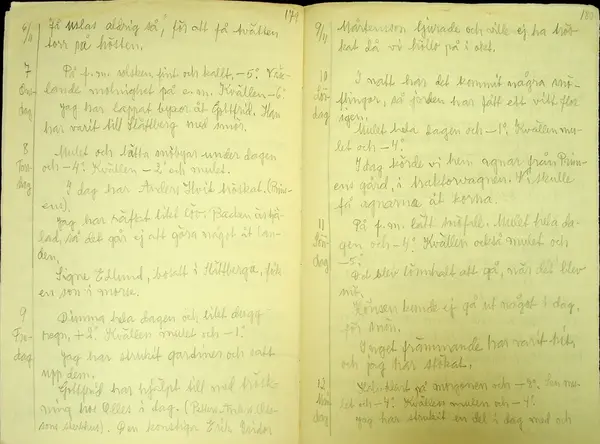 179
6/11
så, för att få tvätten
torr på hösten.
7
Ons
dag
På f.m. solsken fint och kallt, -5°. Väx
lande molnighet på e.m. Kvällen -6°
Jag har lappat byxor åt Gottfrid. Han
har varit till med smör.
8
Tors
dag
Mulet och lätta snöbyar under dagen
och -4°. Kvällen -2° och mulet.
I dag har Anders Hvit tröskat.
Jag har räfsat litet löv. Backen är
lad, så det går ej att göra något åt lan
den.
Signe Edlund, bosatt i fök
en son i morse.
9
Fre
dag
Dimma hela dagen och litet dugg
regn, +2° Kvällen mulet och -1°
Jag har strukit gardiner och satt
upp dem.
Gottfrid har hjälpt till med trösk
ning hos Olles i dag.
Den konstige Erik
180
9/11
Mårtensson ljurade och ville ej ha trös
kat då vi höllo på i okt.
10
Lör
dag
I natt har det kommit några snö
flingor, så jorden har fått ett vitt flor
igen.
Mulet hela dagen och -1°. Kvällen mu
let och -4°.
I dag körde vi hem agnar från
ens gård, i traktorvagnen. Vi skulle
få agnarna åt korna.
11
Sön
dag
På f.m. lätt snöfall. Mulet hela da
gen och -4°. Kvällen också mulet och
-5°.
Det blev tomhalt att gå, när det blev
snö.
kunde ej gå ut något i dag,
för snön.
Inget främmande har varit hit,
och jag har stökat.
12
Mån
dag
på morgonen och -9°. Sen mu
let och -4°. Kvällen mulen och -4°.
Jag har strukit en del i dag med och